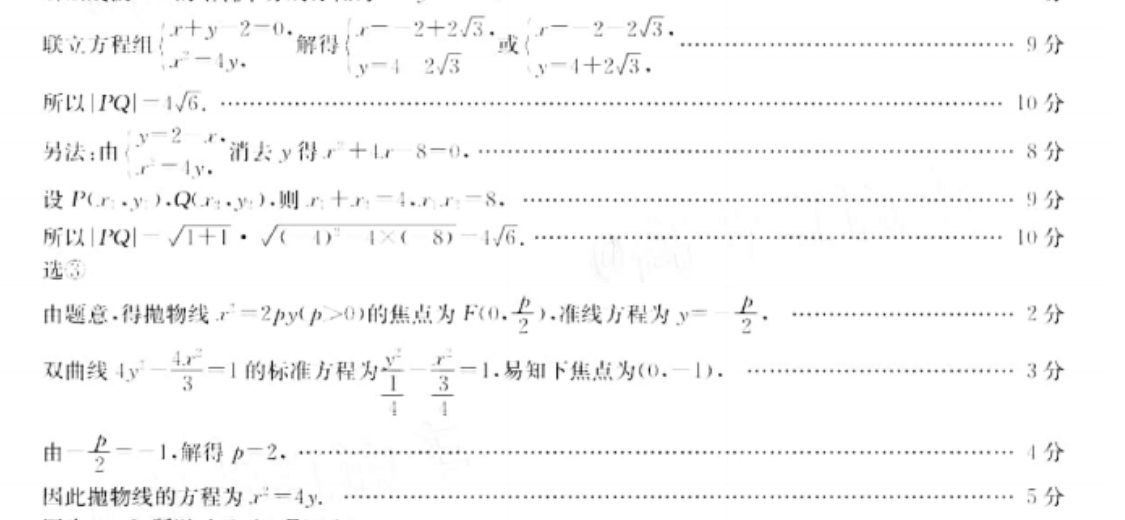 联立方程组{x+y-2=0, x²=4y, 解得{x=-2+2√3, y=4-2√3 或{x=-2-2√3, y=4+2√3, …… 9分
所以|PQ|=4√6. …… 10分
另法:由{y=2-x, x²=4y, 消去y得x²+4x-8=0, …… 8分
设P(x₁,y₁),Q(x₂,y₂),则x₁+x₂=-4,x₁x₂=-8, …… 9分
所以|PQ|=√(1+1)·√((-4)²-4×(-8))=4√6. …… 10分
选③
由题意,得抛物线x²=2py(p>0)的焦点为F(0,p/2),准线方程为y=-p/2, …… 2分
双曲线4y²-4x²/3=1的标准方程为y²/(1/4)-x²/(3/4)=1,易知下焦点为(0,-1), …… 3分
由-p/2=-1,解得p=2, …… 4分
因此抛物线的方程为x²=4y. …… 5分